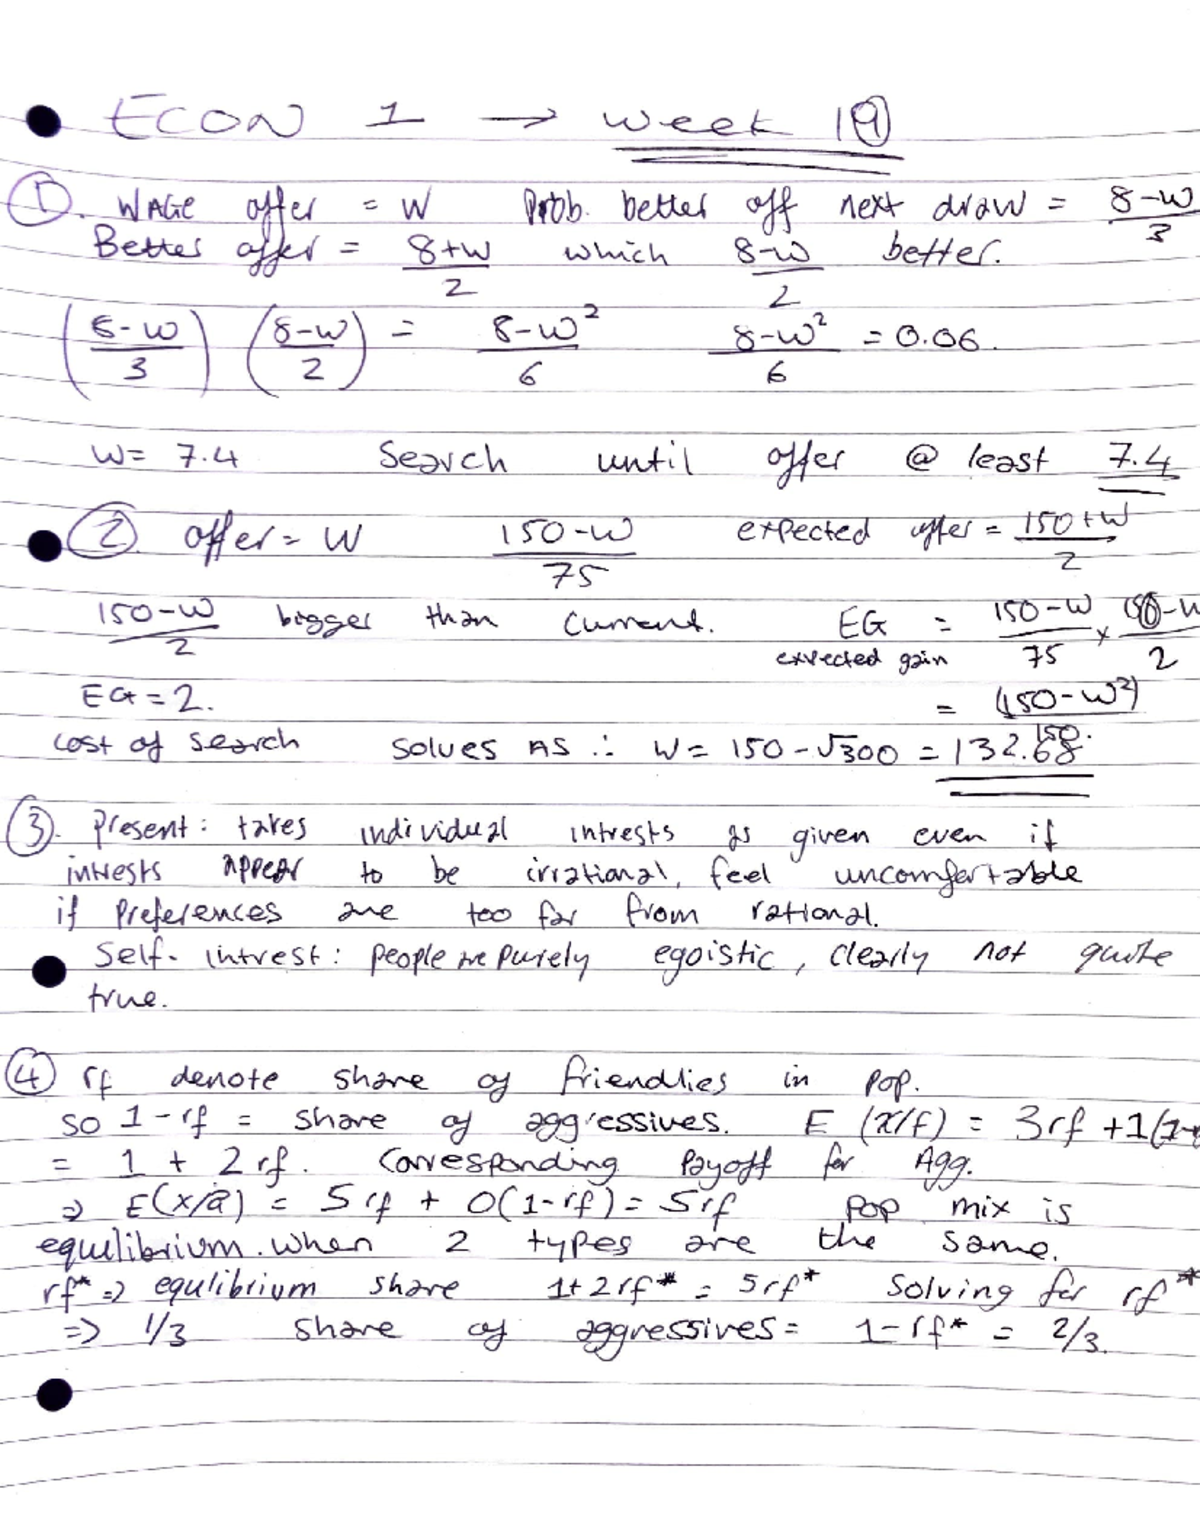 ECON 1 → week 19
① WAGE offer = W Prob. better off next draw = 8-w/3
Better offer = 8+w/2 which 8-w/2 better.
(8-w/3) (8-w/2) = 8-w²/6 8-w²/6 = 0.06.
W= 7.4 Search until offer @ least 7.4
② offer = W 150-W/75 expected offer = 150+W/2
150-W/2 bigger than current. EG = 150-W/75 × 150-W/2
expected gain
EG = 2. = (150-W²)/150.
cost of search solves AS ∴ W= 150-√300 = 132.68
③. Present: takes individual intrests as given even if
intrests appear to be irrational, feel uncomfortable
if preferences are too far from rational.
Self-intrest: people are purely egoistic, clearly not quite
true.
④ rf denote share of friendlies in pop.
so 1-rf = share of aggressives. E (x/f) = 3rf +1(1-
= 1 + 2rf. Corresponding payoff for Agg.
⇒ E(x/a) = 5rf + 0(1-rf) = 5rf pop mix is
equilibrium. when 2 types are the same.
rf* ⇒ equlibrium share 1+2rf* = 5rf* Solving for rf*
⇒ 1/3 share of aggressives = 1-rf* = 2/3.